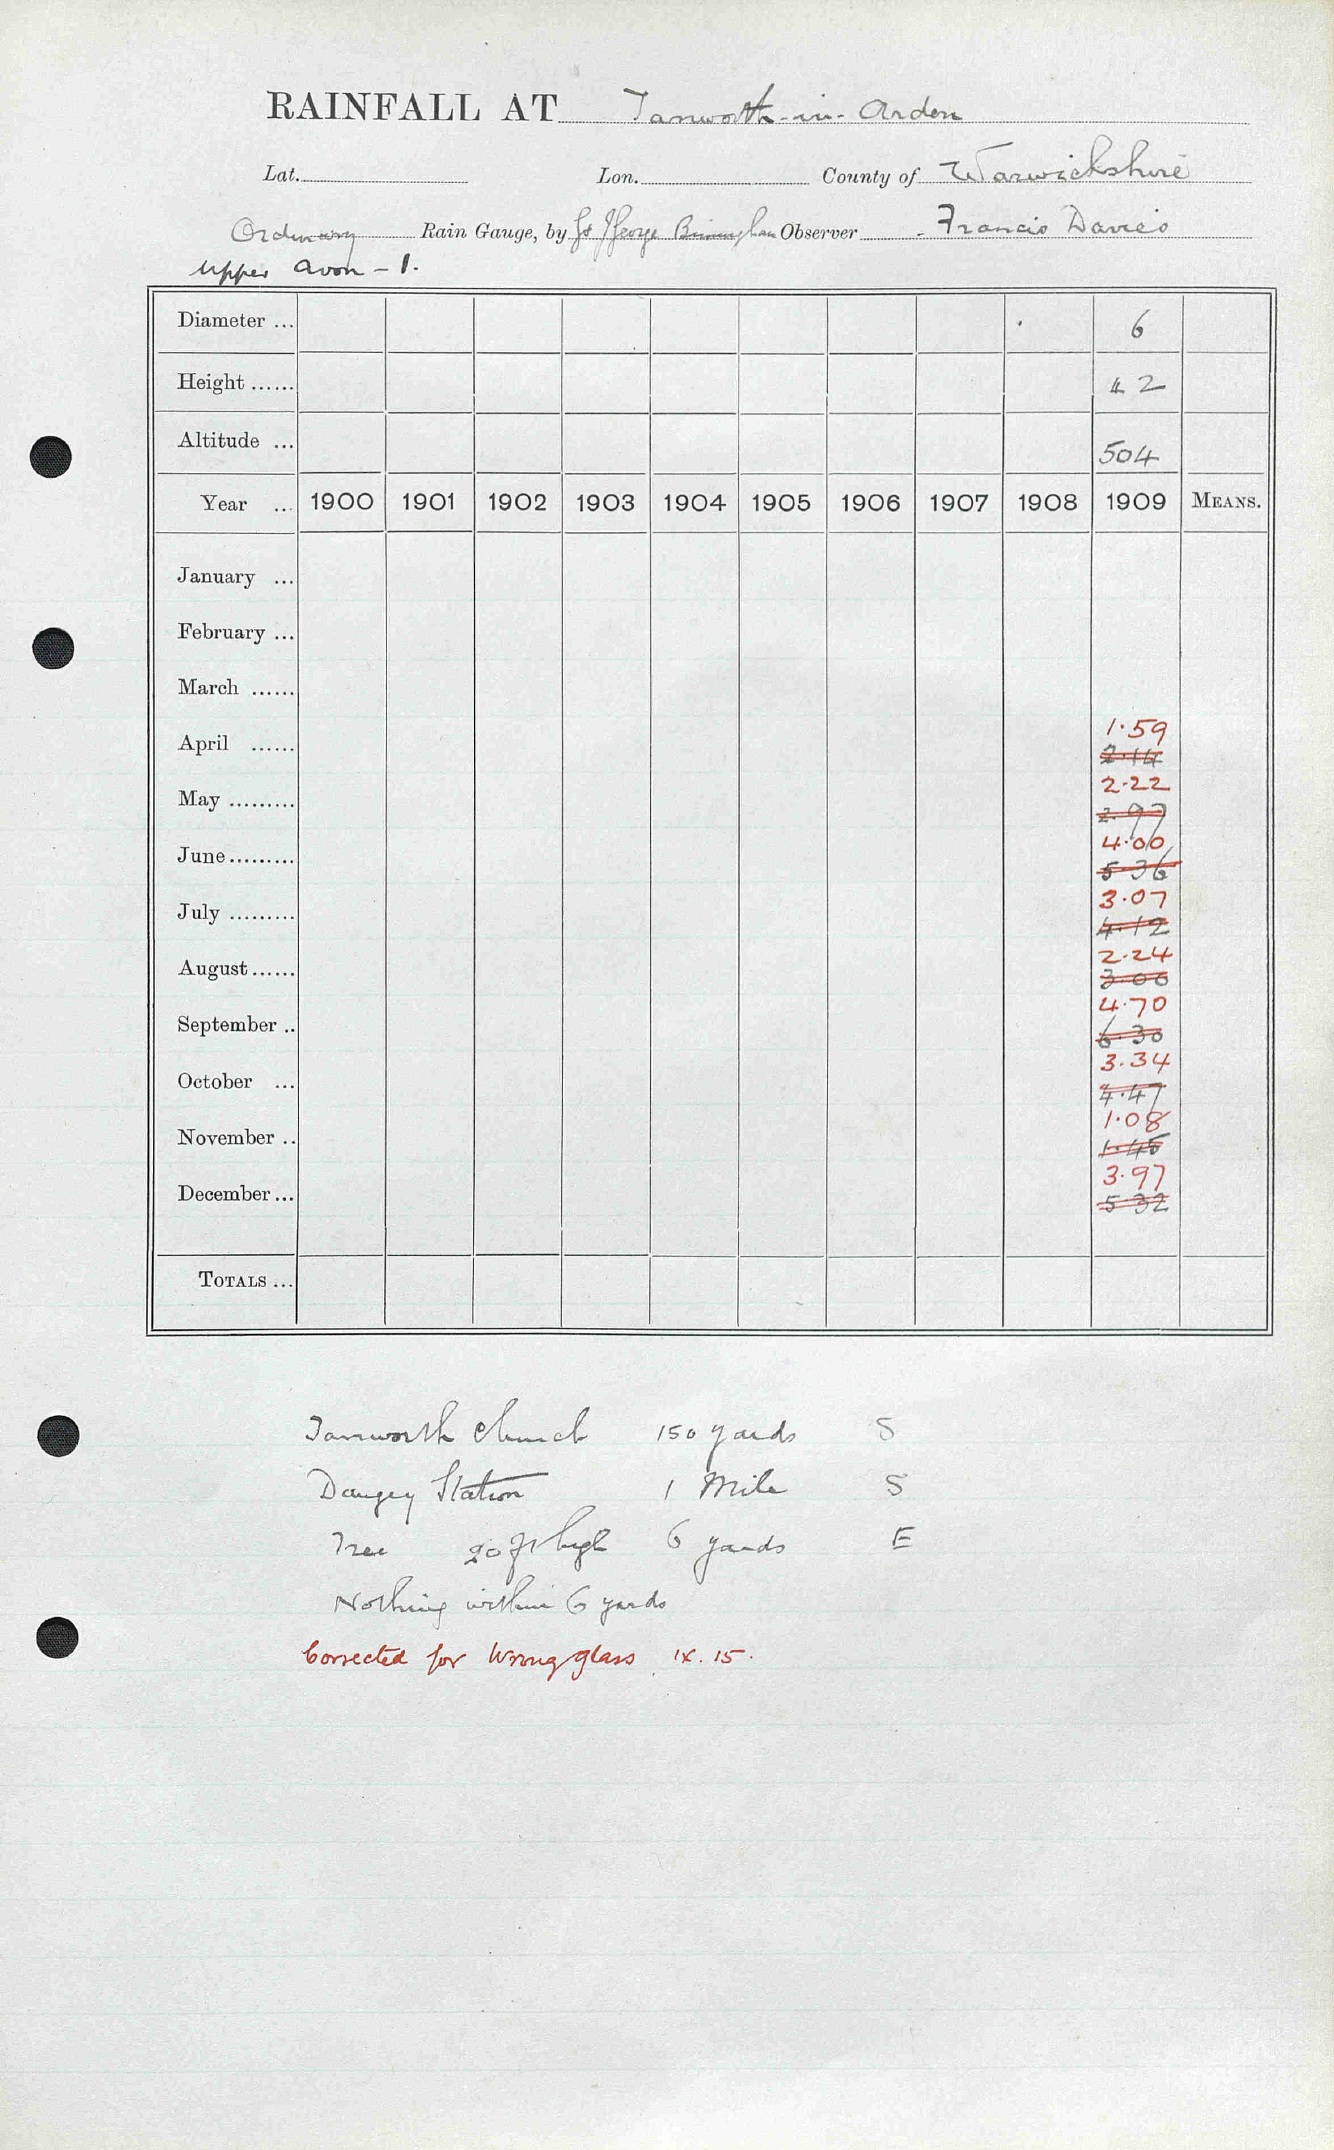 RAINFALL AT Tanworth-in-Arden
Lat. Lon. County of Warwickshire
Ordinary Rain Gauge, by George Birmingham Observer Francis Davies
Upper Avon - 1.
Diameter ... 6
Height ...... 2
Altitude ... 504
Year ... 1900 1901 1902 1903 1904 1905 1906 1907 1908 1909 MEANS.
January ...
February ...
March ......
1.59
April ...... 2.14
2.22
May ......... 2.97
4.00
June......... 5 36
3.07
July ......... 4.12
2.24
August...... 3 00
4.70
September .. 6 30
3.34
October ... 4.47
1.08
November .. 1.45
3.97
December... 5 32
TOTALS ...
Tanworth Church 150 yards S
Station 1 Mile S
Tree 20 ft high 6 yards E
Nothing within 6 yards
Corrected for wrong glass IX. 15.